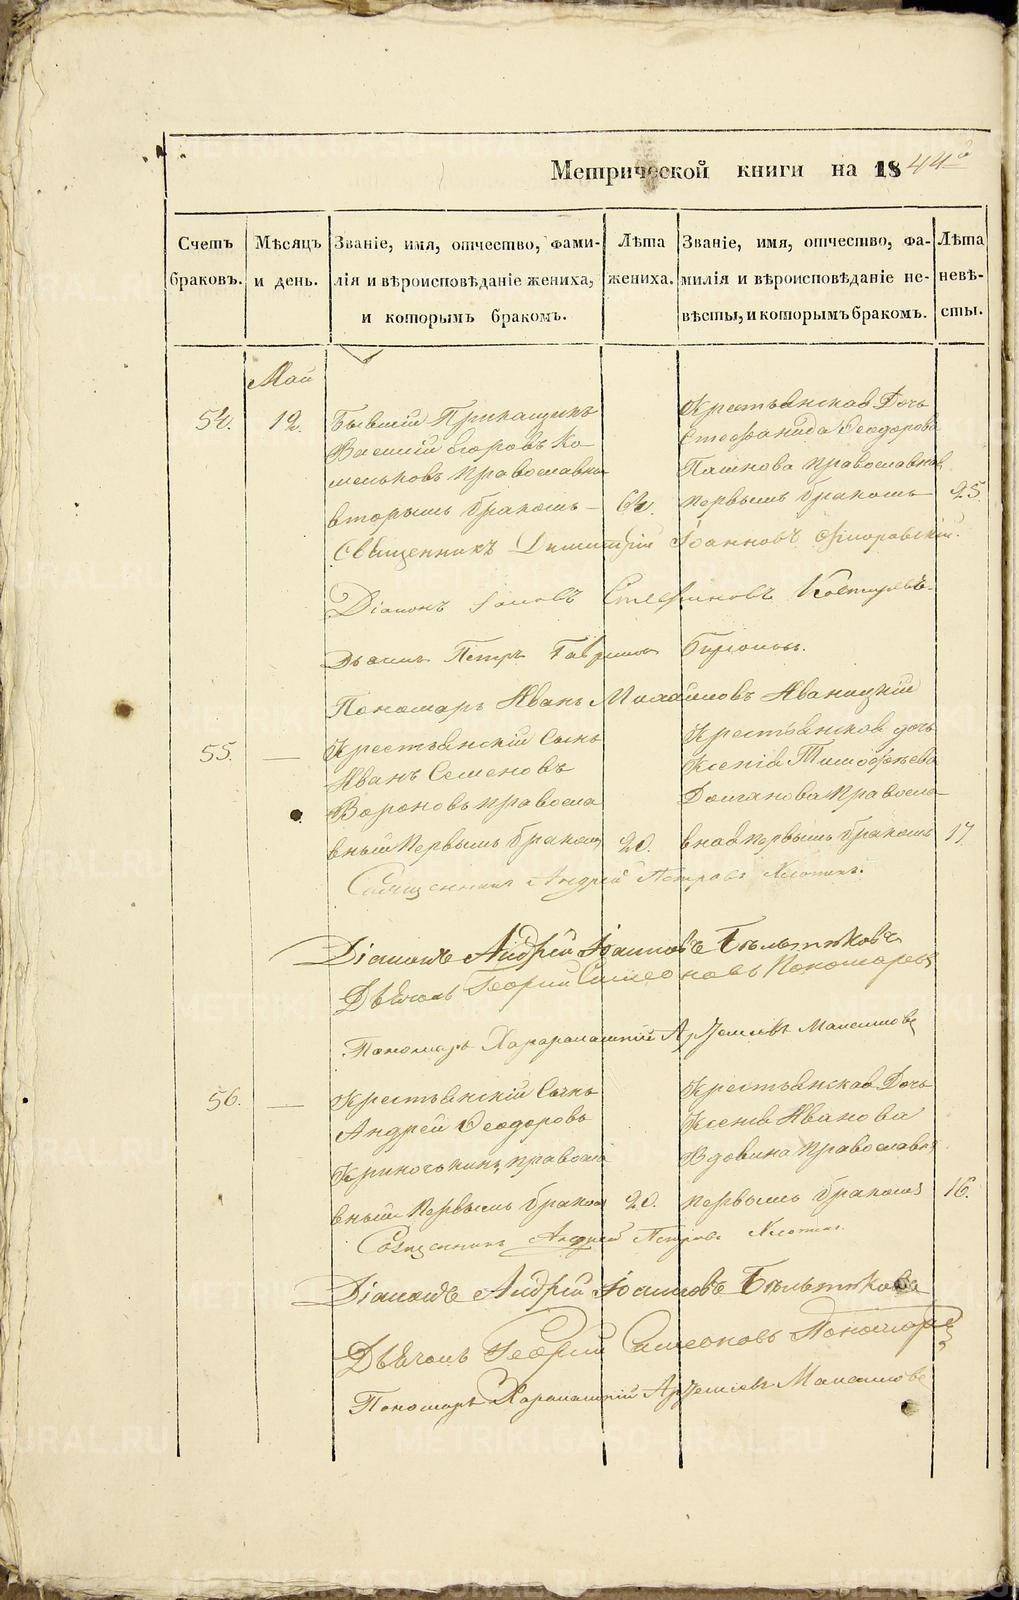 Метрической книги на 1844й
Счетъ браковъ.
Мѣсяцъ и день.
Званіе, имя, отчество, фами-
лія и вѣроисповѣданіе жениха,
и которымъ бракомъ.
Лѣта жениха.
Званіе, имя, отчество, фа-
милія и вѣроисповѣданіе не-
вѣсты, и которымъ бракомъ.
Лѣта невѣ-
сты.
Май
54. 12.
Бывшій Прикащикъ
Василій Егоровъ Ко-
мельковъ православны
вторымъ бракомъ –
62.
Крестьянская Дочь
Стефанида Феодорова
Пашкова православная
первымъ бракомъ
25
Священникъ Димитрій Іоанновъ
Діаконъ Стефановъ
Дьячекъ Петръ Гавриловъ
Пономарь Иванъ Михайловъ Иваницкій
55. —
Крестьянскій Сынъ
Иванъ Семеновъ
Вороновъ правосла
вный Первымъ бракомъ
20.
Крестьянская дочь
Ксенія Тимофѣева
Долганова Правосла-
вная первымъ бракомъ
17
Священникъ Андрей Петровъ
Діаконъ Андрей Іоанновъ Бѣльтюковъ
Дьячокъ Георгий Симеоновъ Пономаревъ
Пономарь Харалампій Артемьевъ Максимовъ
56. —
Крестьянскій Сынъ
Андрей Феодоровъ
Криночкинъ, правосла
вный Первымъ бракомъ
20.
Крестьянская Дочь
Ксенія Иванова
Вдовина Православная
первымъ бракомъ
16.
Священникъ Андрей Петровъ
Діаконъ Андрей Іоанновъ Бѣльтюковъ
Дьячокъ Георгій Симеоновъ Пономаревъ
Пономарь Харалампій Артемьевъ Максимовъ
METRIKI.GASO-URAL.RU